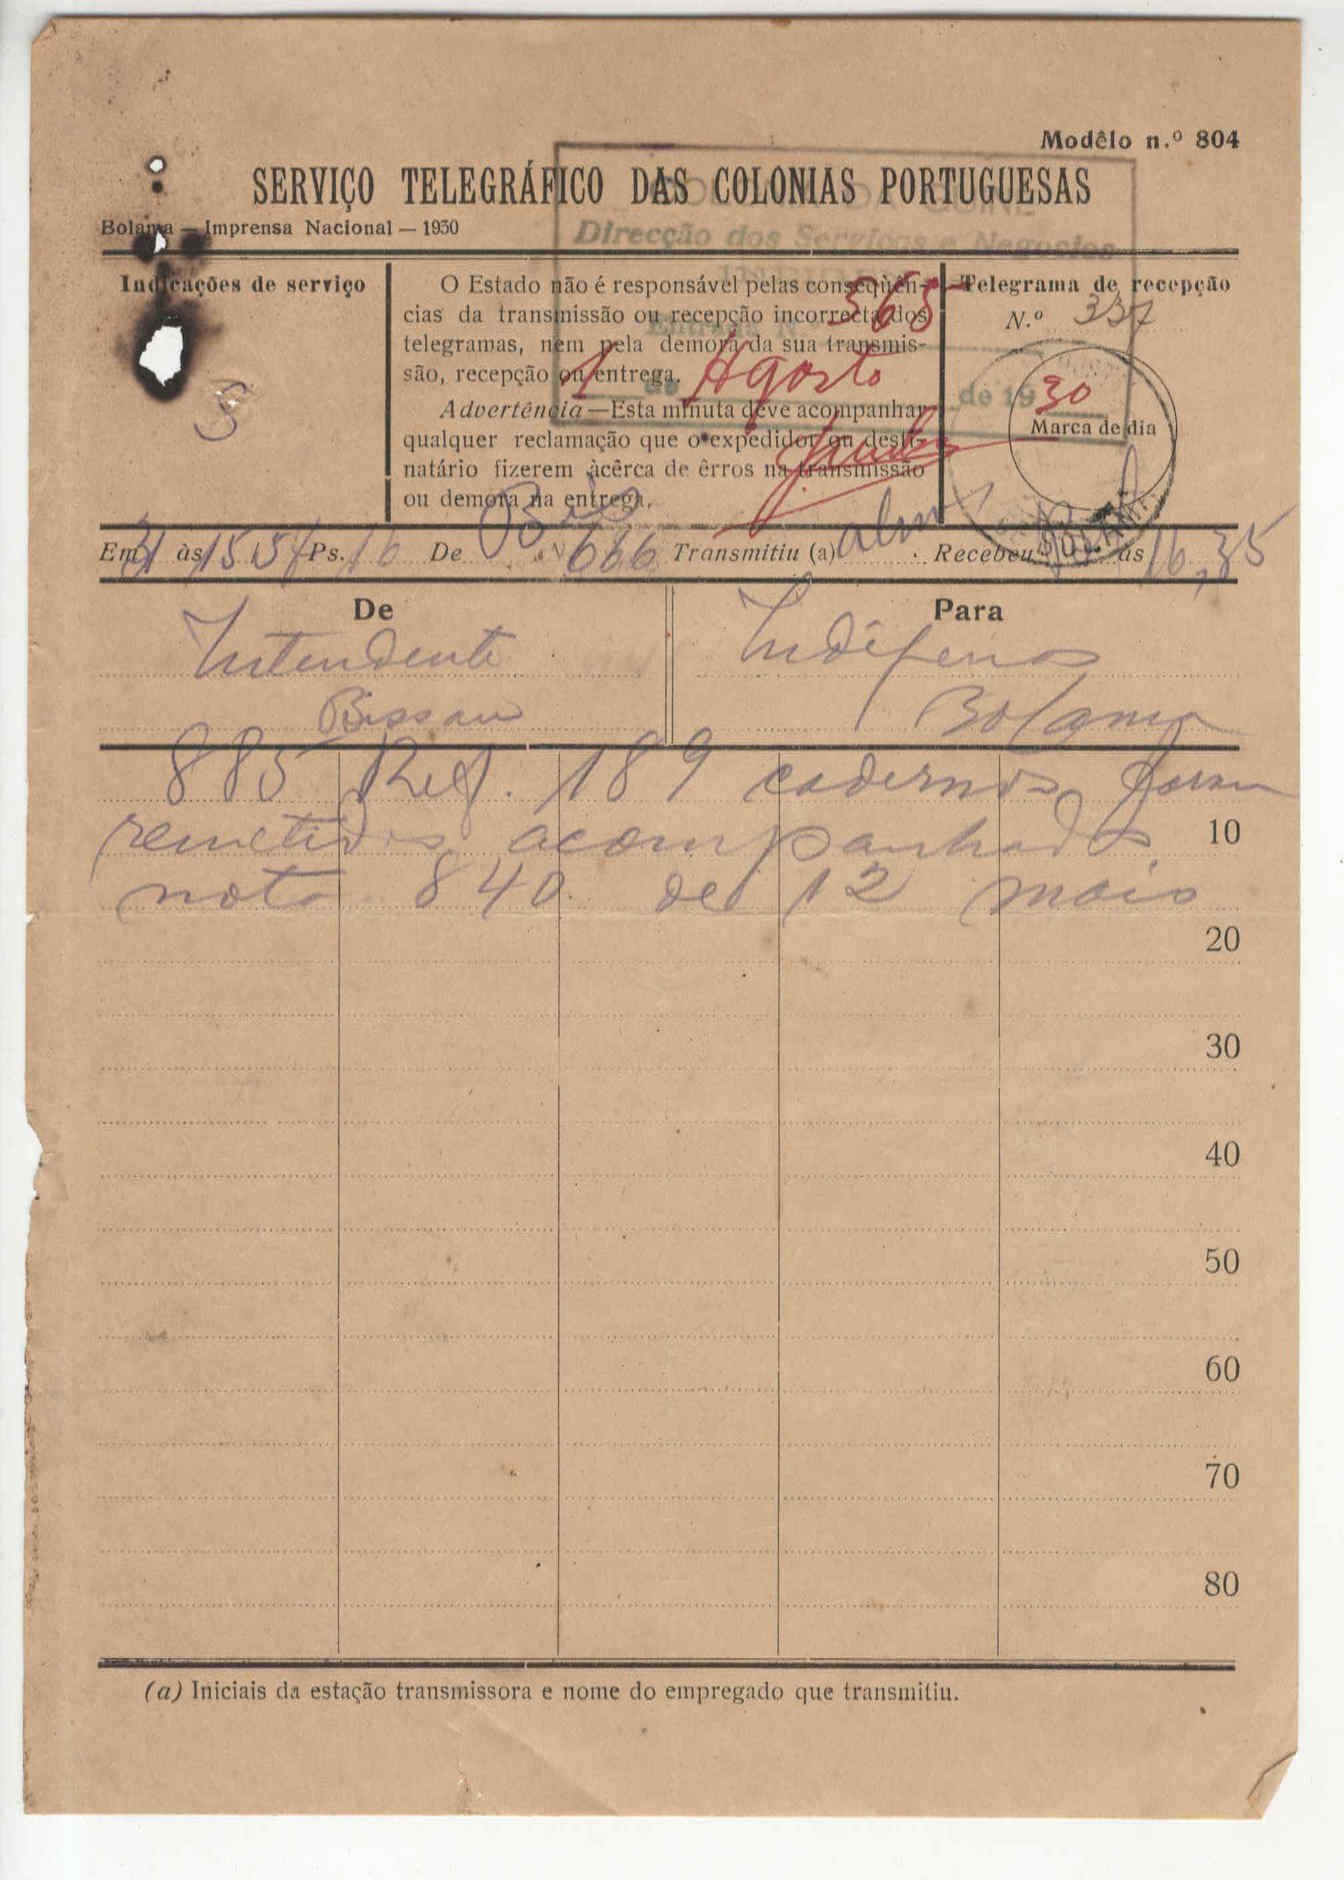 Modêlo n.º 804
SERVIÇO TELEGRÁFICO DAS COLONIAS PORTUGUESAS
Bolama — Imprensa Nacional — 1930
Direcção dos Serviços e Negocios
Indicações de serviço
S
O Estado não é responsável pelas conseqùên-
cias da transmissão ou recepção incorrecta dos
telegramas, nem pela demora da sua transmis-
são, recepção ou entrega.
Advertência—Esta minuta deve acompanhar
qualquer reclamação que o expedidor ou desti-
natário fizerem àcêrca de êrros na transmissão
ou demora na entrega.
565
1 de Agosto de 1930
Telegrama de recepção
N.º 337
Marca de dia
BOLAMA
Em 31 às 15,51 Ps. 16 De Bis N 666 Transmitiu (a) Recebeu às 16,35
De
Intendente
Bissau
Para
Indígenas
Bolama
885 Ref. 189 cadernos foram
remetidos acompanhados
10
nota 840 de 12 maio
20
30
40
50
60
70
80
(a) Iniciais da estação transmissora e nome do empregado que transmitiu.